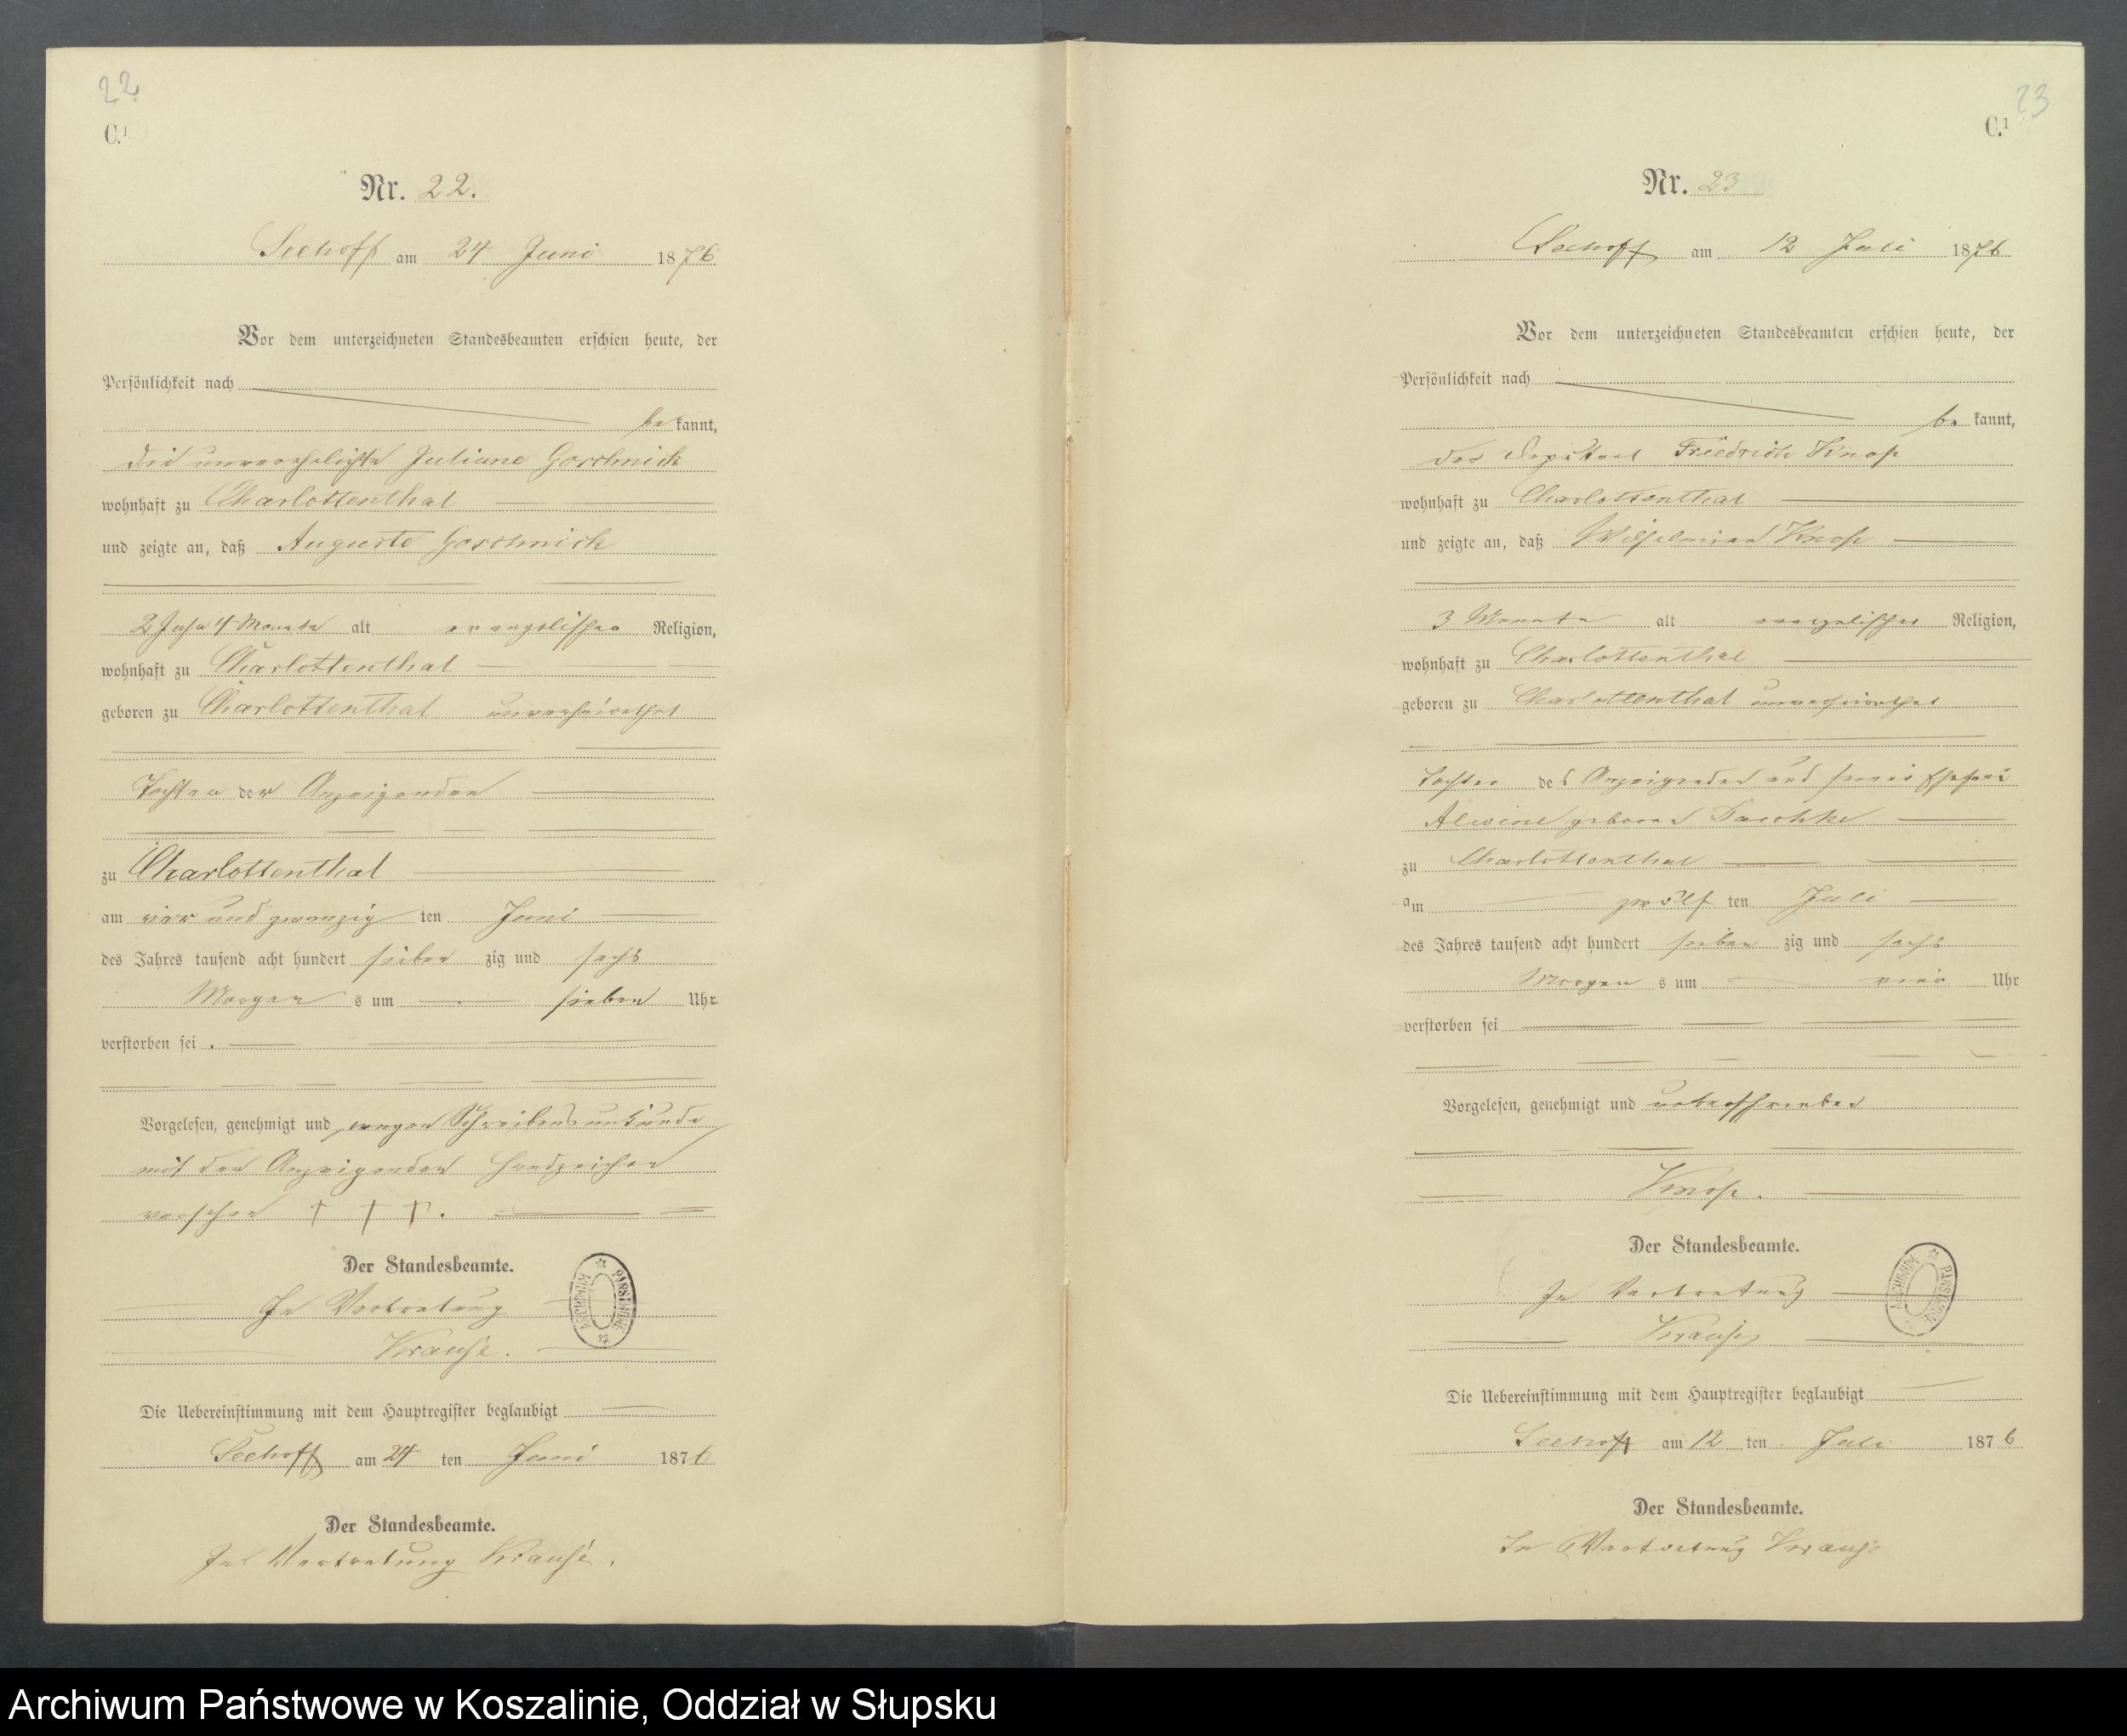 22
C.1
Nr. 22.
Seehoff am 24 Juni 1876
Vor dem unterzeichneten Standesbeamten erschien heute, der
Persönlichkeit nach
be kannt,
die unverehelichte Juliane Goschnick
wohnhaft zu Charlottenthal
und zeigte an, daß Auguste Goschnick
2 Jahr 4 Monate alt evangelischer Religion,
wohnhaft zu Charlottenthal
geboren zu Charlottenthal unverheirathet
Tochter der Anzeigenden
zu Charlottenthal
am vier und zwanzig ten Juni
des Jahres tausend acht hundert sieben zig und sechs
Morgen s um sieben Uhr
verstorben sei.
Vorgelesen, genehmigt und wegen Schreibensunkunde
mit den Anzeigenden Handzeichen
versehen † † †.
Der Standesbeamte.
In Vertretung
Krause.
Die Uebereinstimmung mit dem Hauptregister beglaubigt
Seehoff am 24 ten Juni 1876
Der Standesbeamte.
In Vertretung Krause.
23
C.1
Nr. 23
Seehoff am 12 Juli 1876
Vor dem unterzeichneten Standesbeamten erschien heute, der
Persönlichkeit nach
be kannt,
der Deputant Friedrich Knop
wohnhaft zu Charlottenthal
und zeigte an, daß Wilhelmine Knop
3 Monate alt evangelischer Religion,
wohnhaft zu Charlottenthal
geboren zu Charlottenthal unverheirathet
Tochter des Anzeigenden und seiner Ehefrau
Alwine geborene
zu Charlottenthal
am zwölf ten Juli
des Jahres tausend acht hundert sieben zig und sechs
Morgen s um vier Uhr
verstorben sei
Vorgelesen, genehmigt und unterschrieben
Knop.
Der Standesbeamte.
In Vertretung
Krause
Die Uebereinstimmung mit dem Hauptregister beglaubigt
Seehoff am 12 ten Juli 1876
Der Standesbeamte.
In Vertretung Krause
ARCHIWUM PAŃSTWOWE
ARCHIWUM PAŃSTWOWE
Archiwum Państwowe w Koszalinie, Oddział w Słupsku